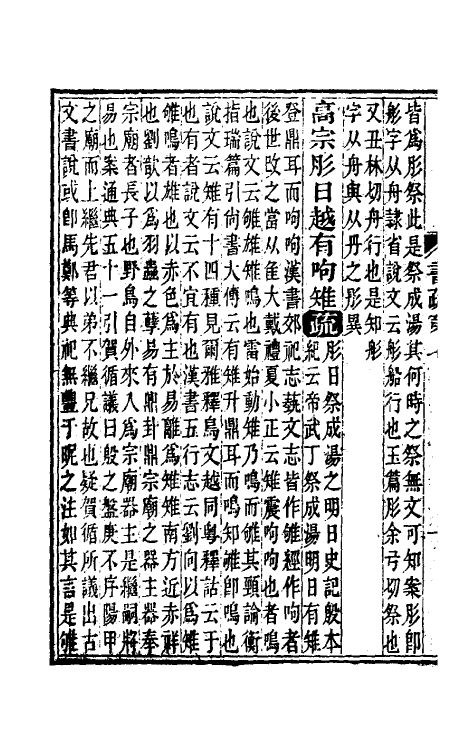 皆爲肜祭此是祭成湯其何時之祭無文可知案肜卽
彤字从舟隷省說文云彤船行也玉篇肜余弓切祭也
又丑林切舟行也是知肜
字从舟與从丹之彤異
高宗肜日越有呴雉疏肜日祭成湯之明日史記殷本
紀云帝武丁祭成湯明日有雉
登鼎耳而呴呴漢書郊祀志蓺文志皆作雊經作呴者
後世改之當从隹大戴禮夏小正云雉震呴呴也者鳴
也說文云雊雄雉鳴也雷始動雉乃鳴而雊其頸論衡
指瑞篇引尚書大傳云有雉升鼎耳而鳴知雊卽鳴也
說文云雉有十四種見爾雅釋鳥文越同粤釋詁云于
也有者說文云不宜有也漢書五行志云劉向以爲雉
雊鳴者雄也以赤色爲主於易離爲雉雉南方近赤祥
也劉歆以爲羽蟲之孽易有鼎卦鼎宗廟之器主器奉
宗廟者長子也野鳥自外來入爲宗廟器主是繼嗣將
易也案通典五十一引賀循議曰殷之盤庚不序陽甲
之廟而上繼先君以弟不繼兄故也疑賀循所議出古
文書說或卽馬鄭等典祀無豐于昵之注如其言是雊